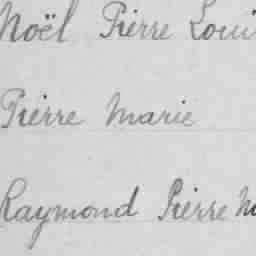 Noël Pierre Loui
Pierre Marie
Raymond Pierre